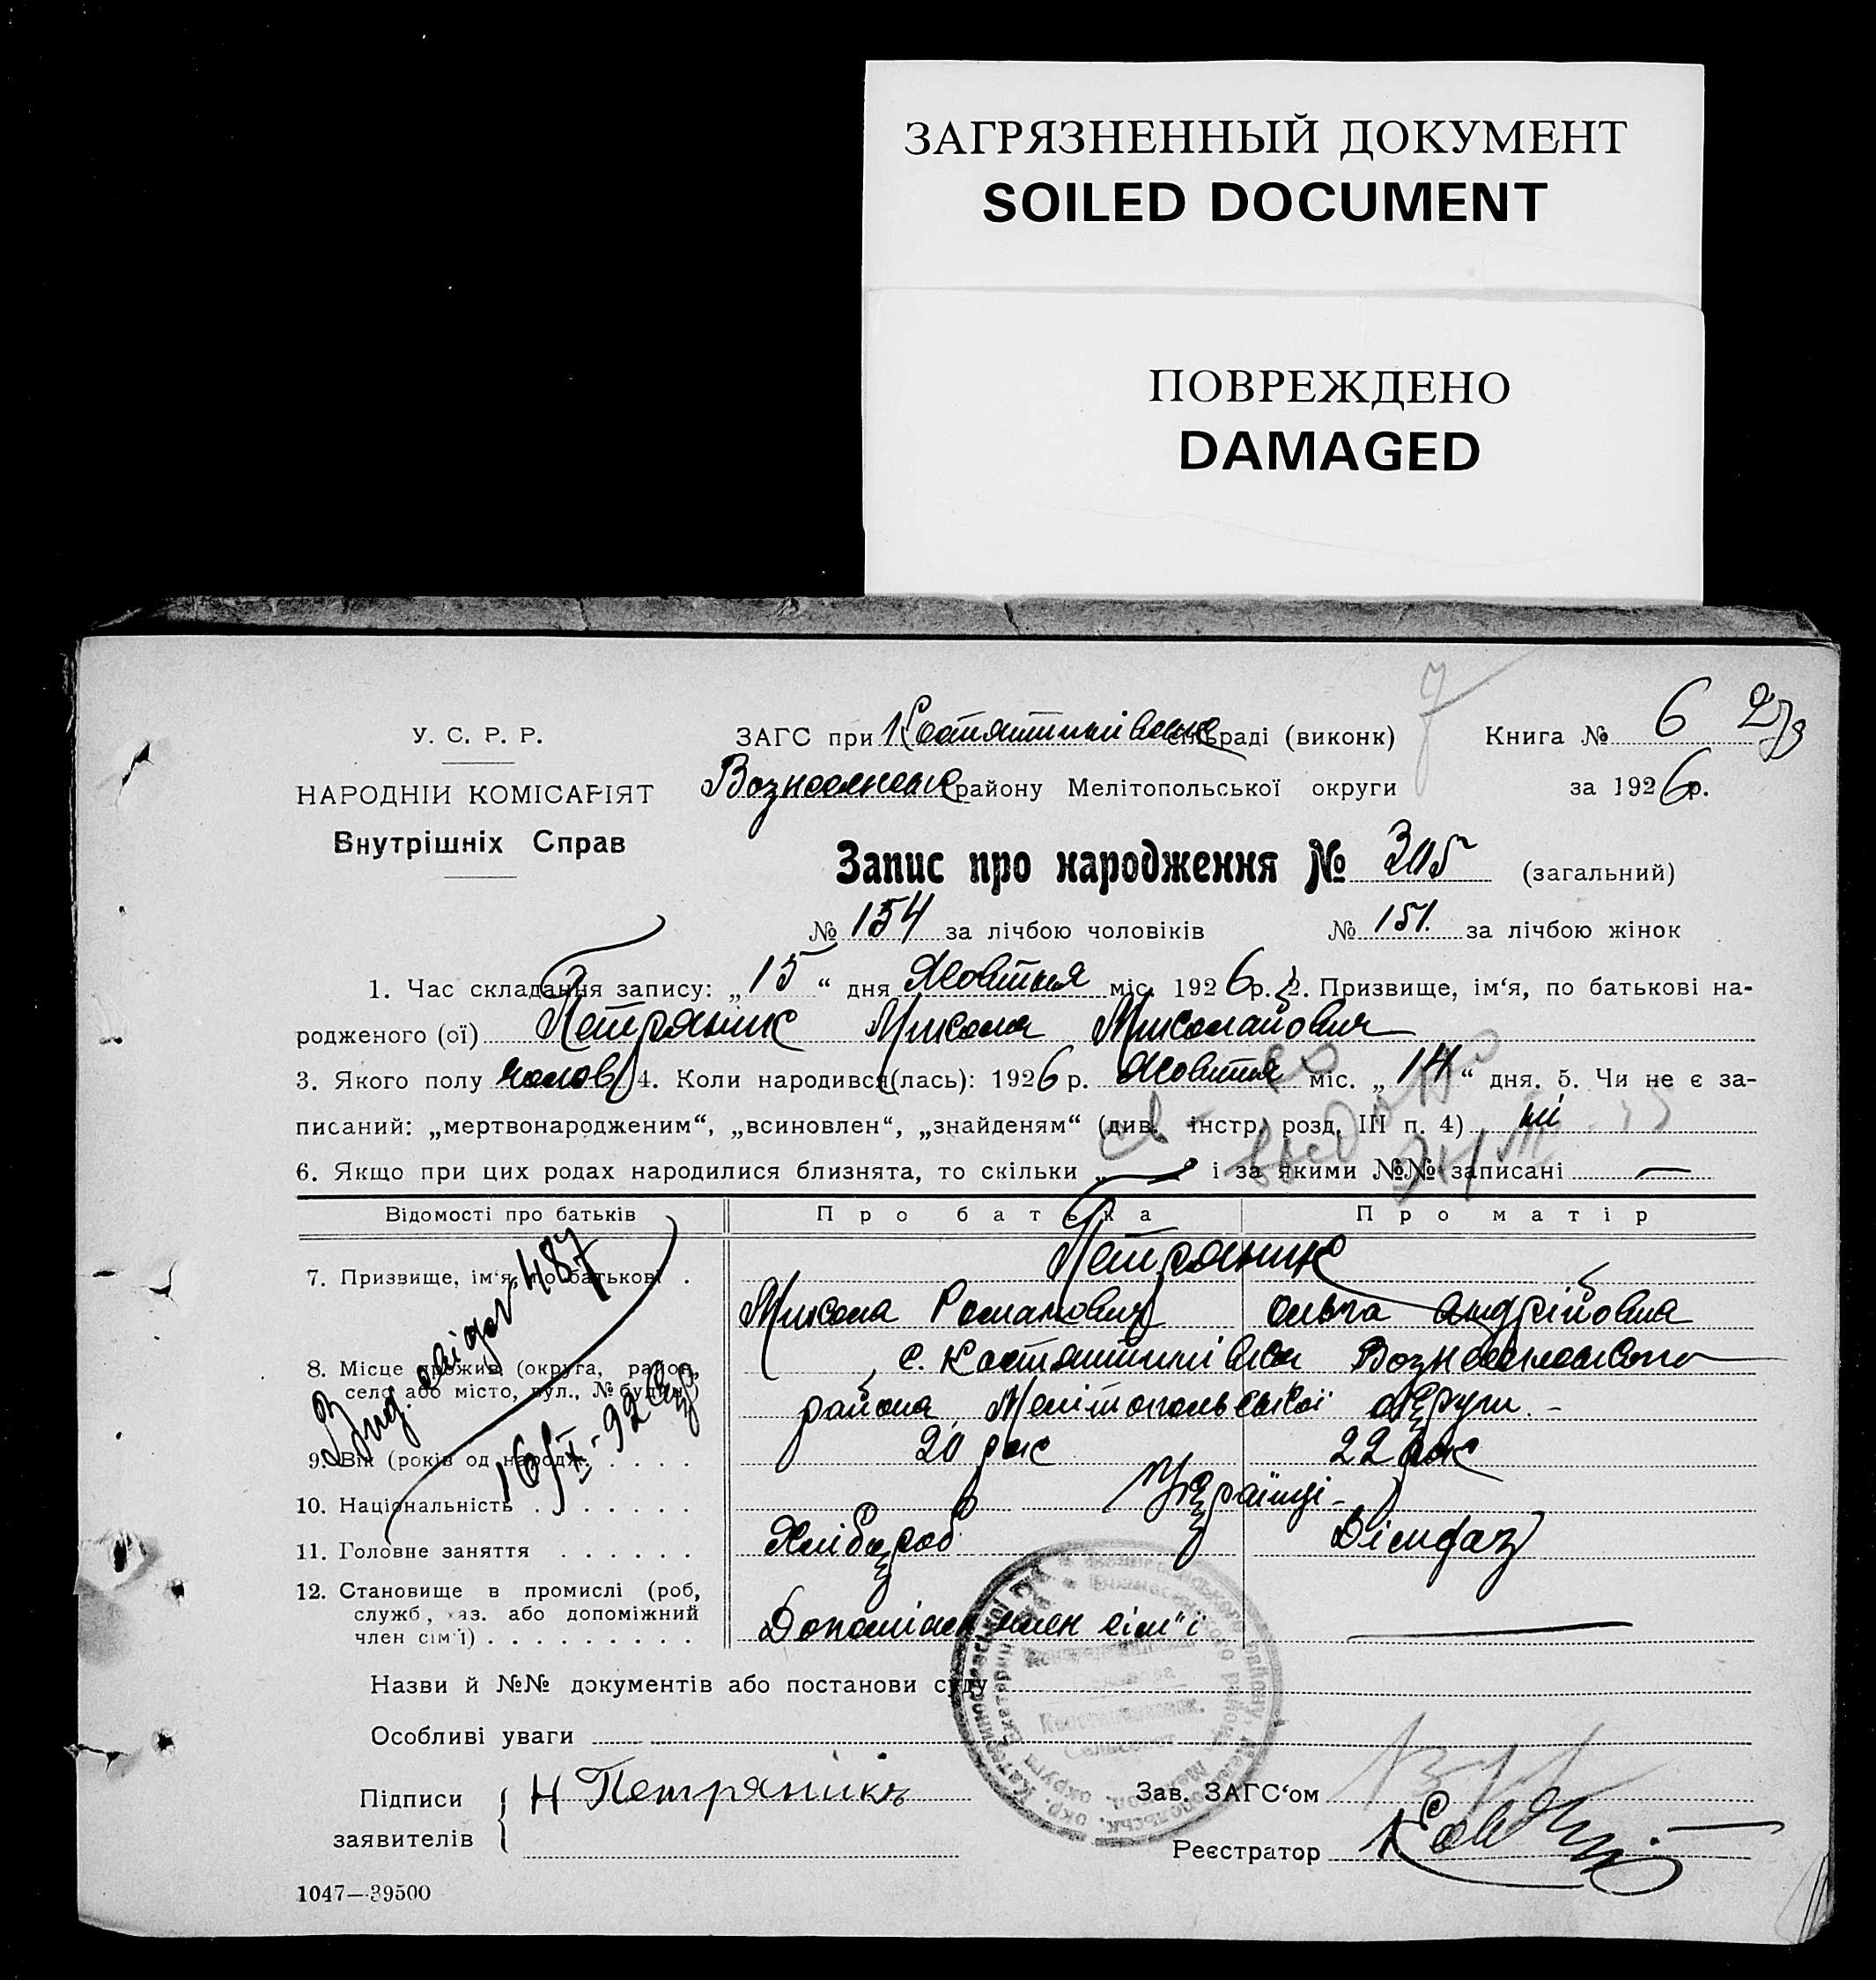 ЗАГРЯЗНЕННЫЙ ДОКУМЕНТ
SOILED DOCUMENT
ПОВРЕЖДЕНО
DAMAGED
7
У. С. Р. Р.
НАРОДНІЙ КОМІСАРІЯТ
Внутрішніх Справ
ЗАГС при Костянтинівське сільраді (виконк)
Книга № 6 273
Вознесенськ району Мелітопольської округи
за 1926 р.
Запис про народження № 305 (загальний)
№ 154 за лічбою чоловіків № 151. за лічбою жінок
1. Час складання запису: „15“ дня Жовтня міс. 1926 р. 2. Призвище, ім‘я, по батькові на-
родженого (ої) Петряник Микола Миколайович
3. Якого полу чолов 4. Коли народився (лась): 1926 р. Жовтня міс. „14“ дня. 5. Чи не є за-
писаний: „мертвонародженим“, „всиновлен“, „знайденям“ (див. інстр. розд. III п. 4) ні
6. Якщо при цих родах народилися близнята, то скільки „ — і за якими №№ записані —
Відомості про батьків Про батька Про матір
7. Призвище, ім‘я, по батькові . Петряник
Микола Романович Ольга Андрійовна
8. Місце прожив. (округа, район, село або місто, вул., № будин.) с. Костянтинівка Вознесенського
района Мелітопольської округи. –
9. Вік (років од народж. . . . . 20 рік 22 рік
10. Національність . . . . . . . Українці –
11. Головне заняття . . . . . . Хлібороб Дімгаз
12. Становище в промислі (роб, служб, газ. або допоміжний член сім‘ї) . . . . . . . . . Допоміжн член сім"ї —
487
16/X-92
Назви й №№ документів або постанови суду
Особливі уваги
Підписи заявителів Н Петряникъ
Зав. ЗАГС‘ом
Реєстратор
1047—39500